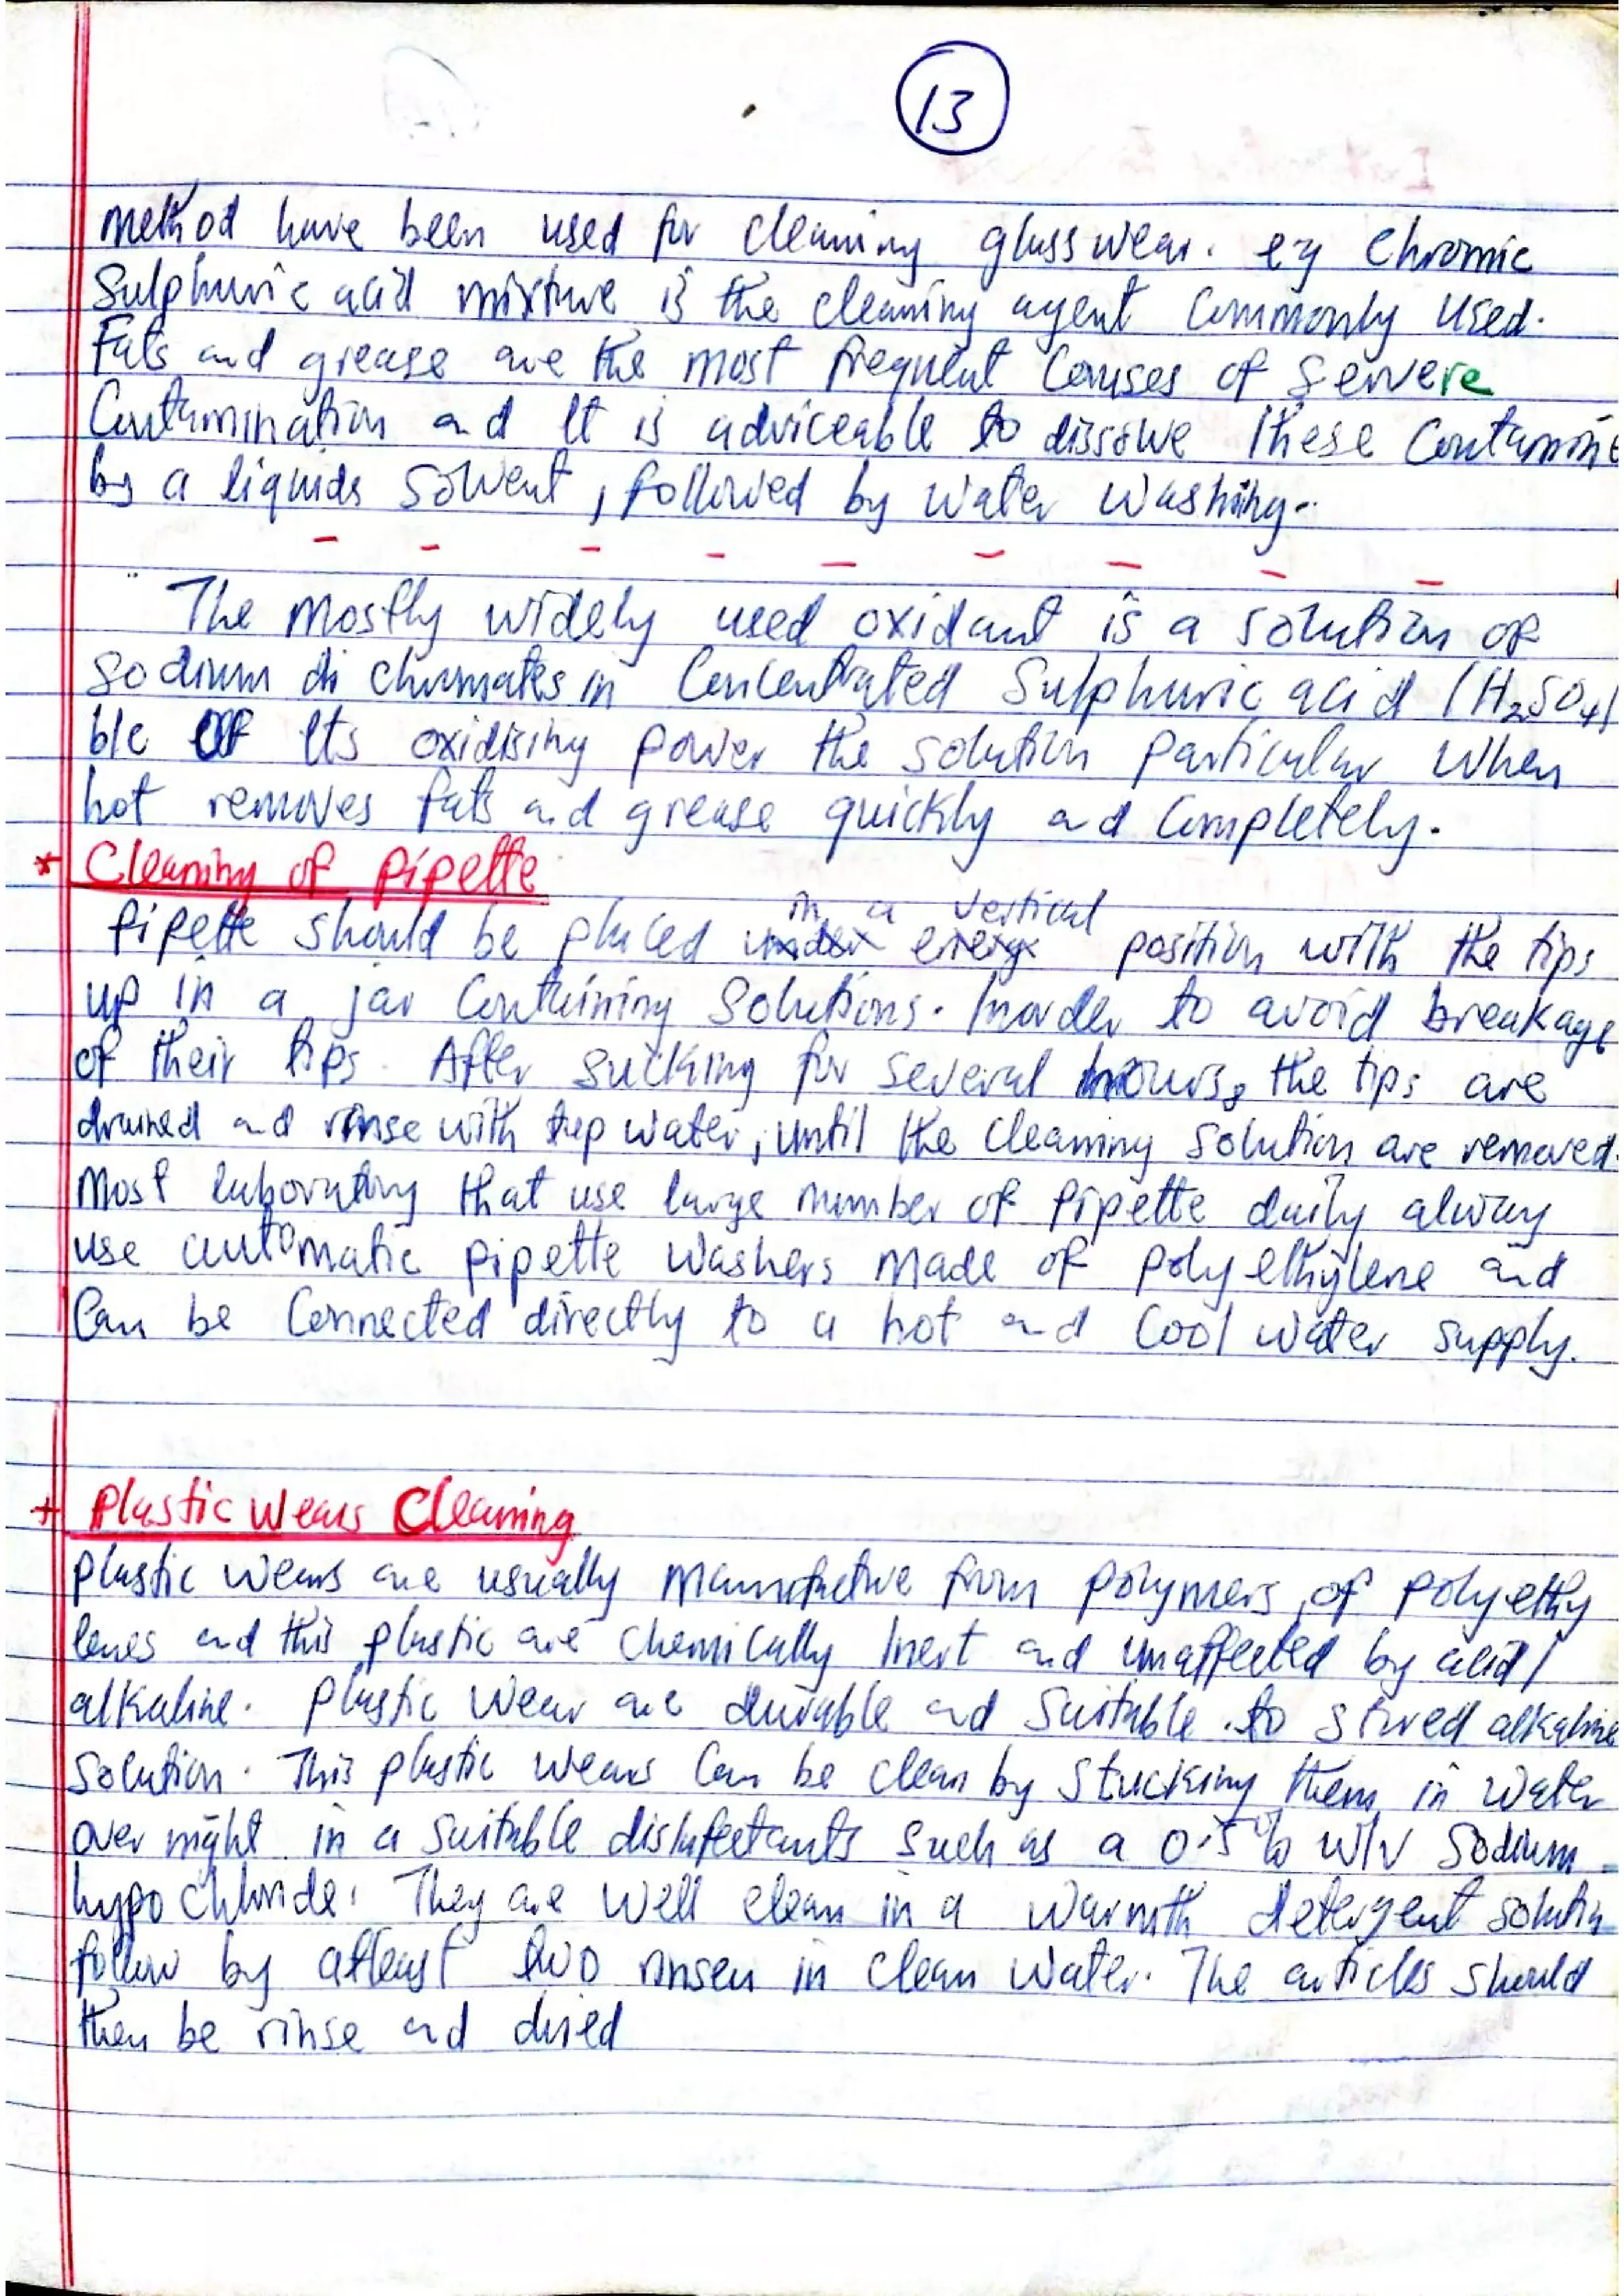 13
method have been used for cleaning glass wear. eg Chromic
Sulphuric acid mixture is the cleaning agent commonly used.
Fats and grease are the most frequent Causes of Servere
Contamination and It is adviceable to dissolve These Contamin
by a liquids Solvent, followed by water washing.
The mostly widely used oxidant is a solution of
Sodium di chromates in Concentrated Sulphuric acid (H₂SO₄)
b/c of Its oxidising power the solution particular when
hot removes fats and grease quickly and Completely.
* Cleaning of pipette
in a vertical
Pipette should be placed under every position with the tips
up in a jar Containing Solutions. Inorder to avoid breakage
of their tips. After sucking for several hours, the tips are
drained and rinse with tap water, until the cleaning solution are removed.
Most laboratory that use large number of pipette daily alway
use automatic pipette washers made of polyethylene and
Can be Connected directly to a hot and Cool water supply.
+ Plastic Wears Cleaning
plastic wears are usually manufacture from polymers of polyethy
lenes and this plastic are chemically Inert and unaffected by acid/
alkaline. plastic wear are durable and Suitable to stored alkaline
Solution. This plastic wears Can be clean by stucking them in water
over night in a suitable disinfectants such as a 0.5% w/v Sodium
hypo chloride. They are well clean in a warmth detergent solution
follow by atleast two rinsen in clean water. The articles should
then be rinse and dried